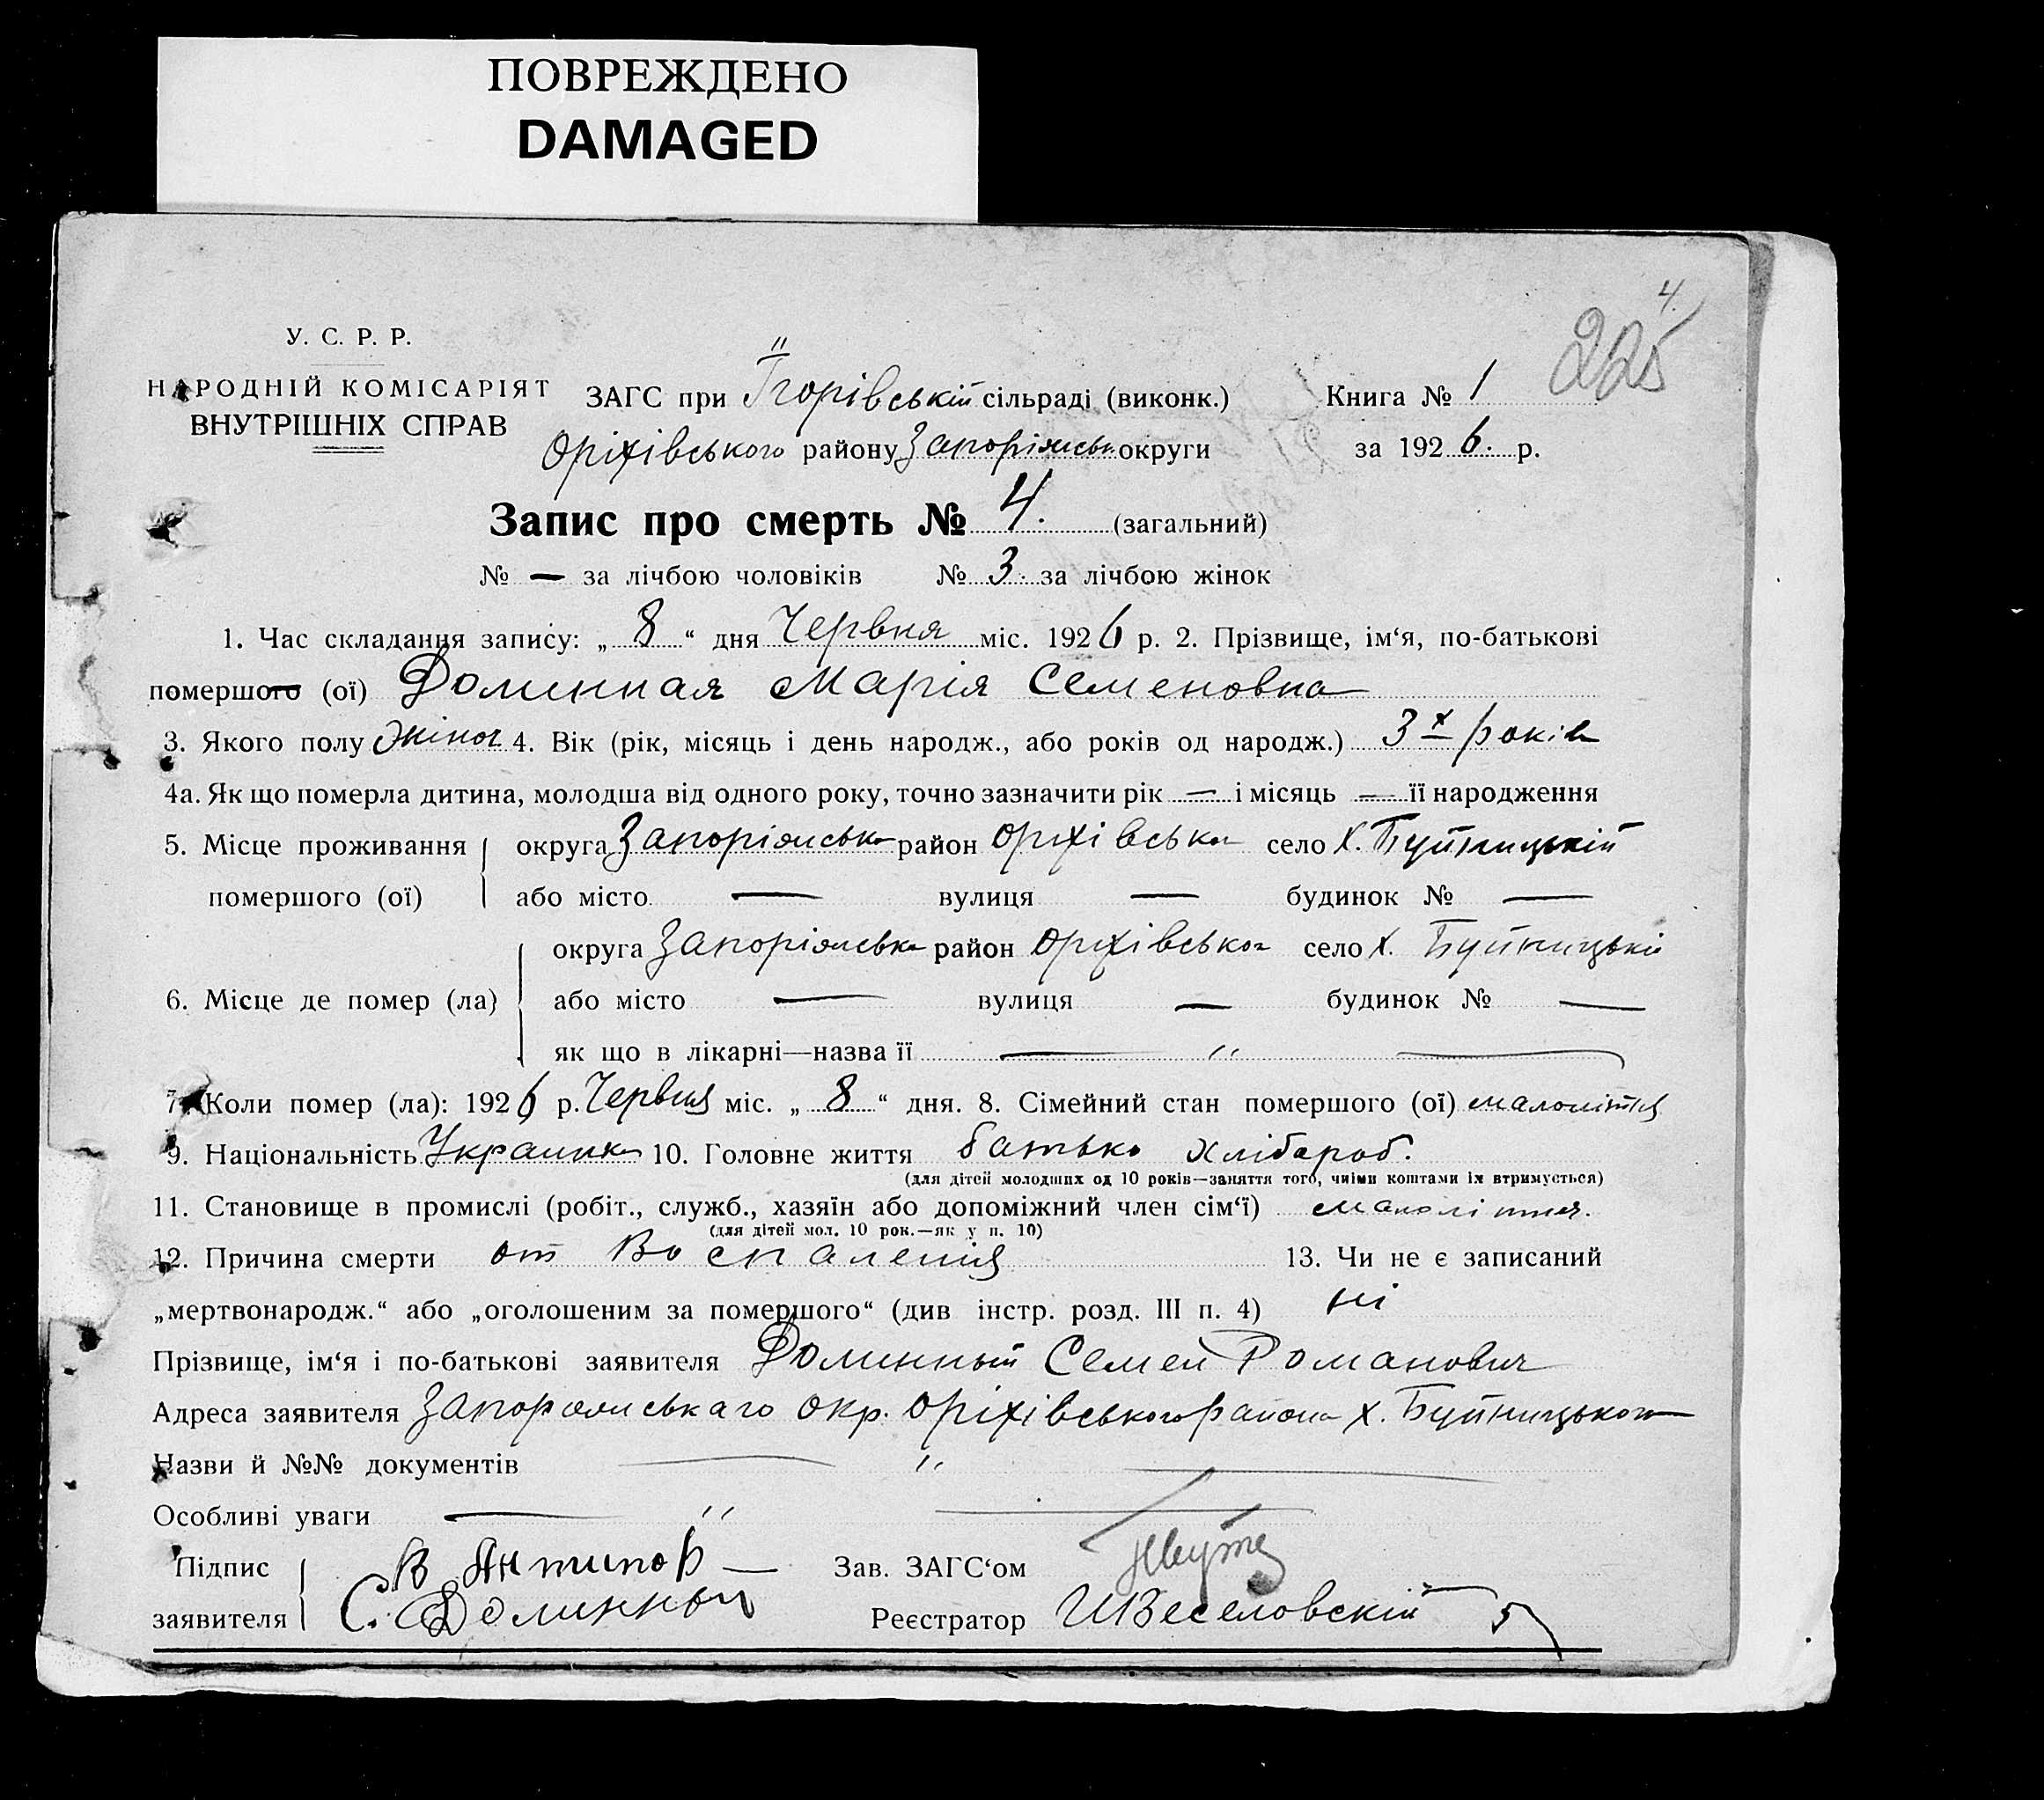 ПОВРЕЖДЕНО
DAMAGED
4.
225
У. С. Р. Р.
НАРОДНІЙ КОМІСАРІЯТ
ВНУТРІШНІХ СПРАВ
ЗАГС при Ігорівській сільраді (виконк.)
Книга № 1
Оріхівського району Запоріжськ округи
за 1926. р.
Запис про смерть № 4. (загальний)
№ — за лічбою чоловіків № 3. за лічбою жінок
1. Час складання запису: „ 8 “ дня Червня міс. 1926 р. 2. Прізвище, ім‘я, по-батькові
помершого (ої) Доминная Марія Семеновна
3. Якого полу жіноч 4. Вік (рік, місяць і день народж., або років од народж.) 3х років
4а. Як що померла дитина, молодша від одного року, точно зазначити рік — і місяць — її народження
5. Місце проживання округа Запоріжська район Оріхівська село х. Буйницькій
помершого (ої) або місто — вулиця — будинок № —
округа Запоріжська район Оріхівська село х. Буйницькій
6. Місце де помер (ла) або місто — вулиця — будинок № —
як що в лікарні—назва її — “ —
7. Коли помер (ла): 1926 р. Червня міс. „ 8 “ дня. 8. Сімейний стан помершого (ої) малолітня
9. Національність Украинка 10. Головне життя батько хлібороб.
(для дітей молодших од 10 років—заняття того, чиїми коштами їх втримується)
11. Становище в промислі (робіт., служб., хазяїн або допоміжний член сім‘ї) малолітня.
(для дітей мол. 10 рок.—як у п. 10)
12. Причина смерти от Воспаления 13. Чи не є записаний
„мертвонародж.“ або „оголошеним за помершого“ (див інстр. розд. III п. 4) ні
Прізвище, ім‘я і по-батькові заявителя Доминный Семен Романович
Адреса заявителя Запорожськаго окр. Оріхівського района х. Буйницького
Назви й №№ документів — “ —
Особливі уваги — “ —
Підпис В Антипов — Зав. ЗАГС‘ом
заявителя С. Доминный Реєстратор ИВеселовскій